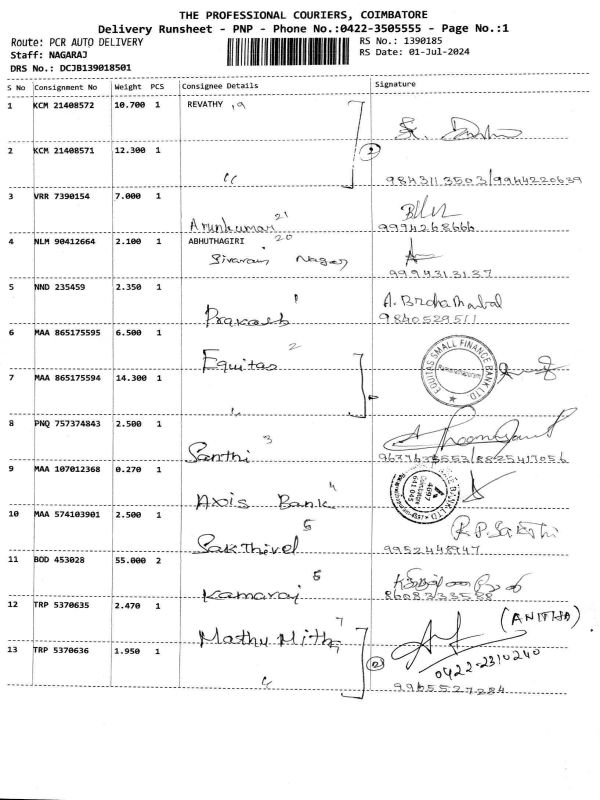 THE PROFESSIONAL COURIERS, COIMBATORE
Delivery Runsheet - PNP - Phone No.:0422-3505555 - Page No.:1
Route: PCR AUTO DELIVERY
RS No.: 1390185
Staff: NAGARAJ
RS Date: 01-Jul-2024
DRS No.: DCJB139018501
S No Consignment No Weight PCS Consignee Details Signature
1 KCM 21408572 10.700 1 REVATHY 19
2 KCM 21408571 12.300 1 " 2
9843113503/9944220639
3 VRR 7390154 7.000 1
Arunkumar 21 9994268666
4 NLM 90412664 2.100 1 ABHUTHAGIRI 20
Sivaram Nagar 9994313137
5 NND 235459 2.350 1
Prakash 1 9840529511
6 MAA 865175595 6.500 1 Equitas 2
EQUITAS SMALL FINANCE BANK LTD
7 MAA 865175594 14.300 1 "
8 PNQ 757374843 2.500 1
Santhi 3 /8825417056
9 MAA 107012368 0.270 1
Axis Bank 4
BANK LTD
4697
641 045
10 MAA 574103901 2.500 1
Sakthivel 5 R.P.Sakthi
9952448947
11 BOD 453028 55.000 2
Kamaraj 6 8608333588
12 TRP 5370635 2.470 1
Mathu Mitha 7 (ANITHA)
13 TRP 5370636 1.950 1 " 2
0422-2310240
9965527284